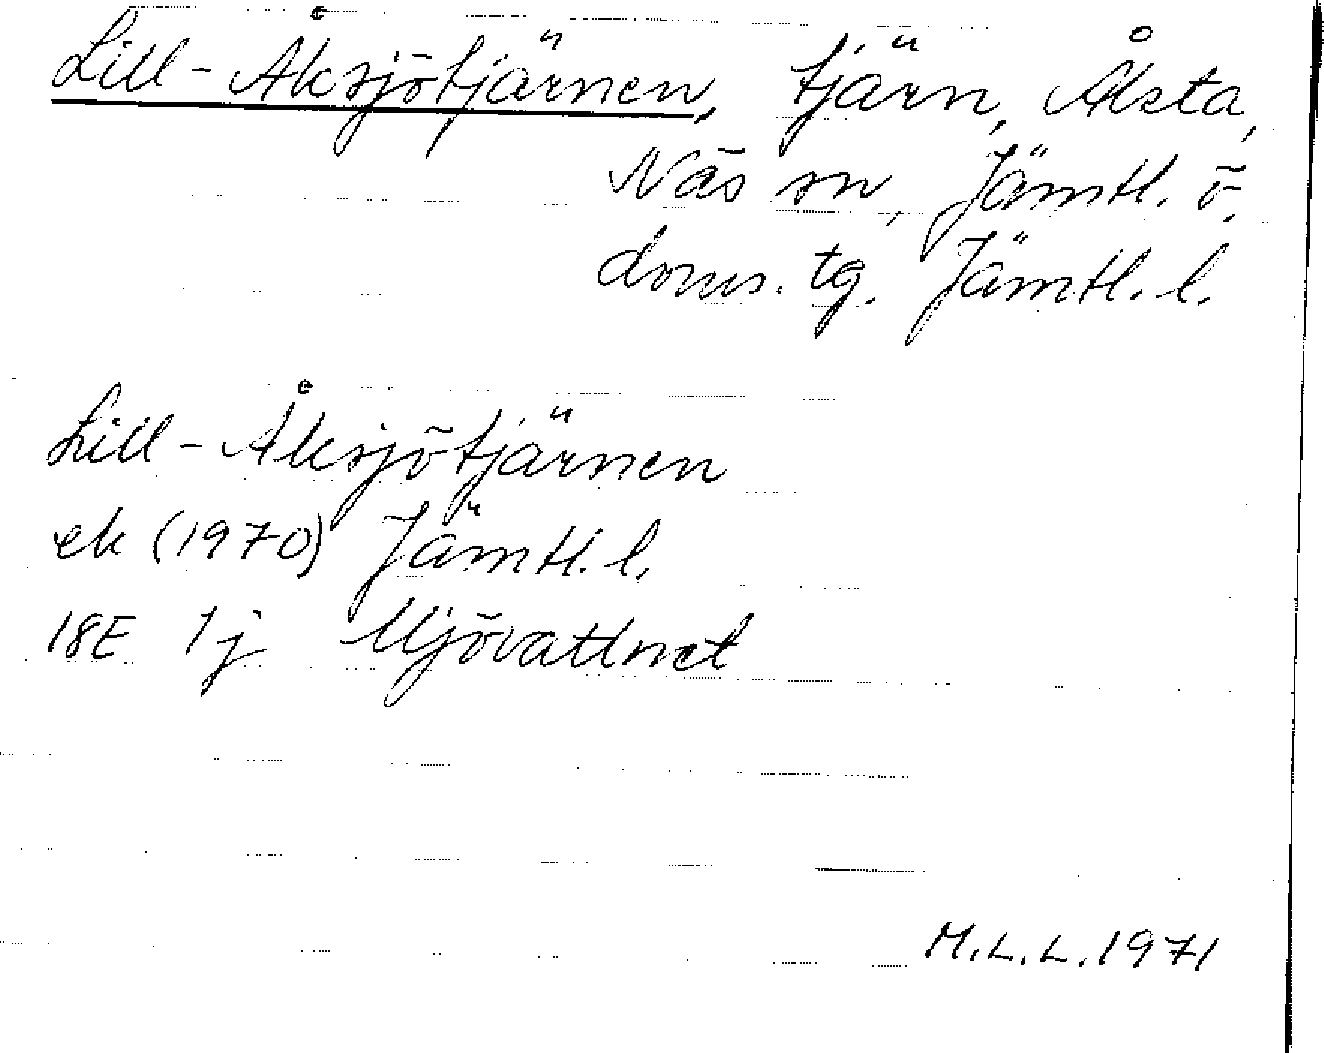 Lill-Åksjötjärnen, tjärn, Åksta,
Näs sn, Jämtl. ö.
doms. tg. Jämtl. l.
Lill-Åksjötjärnen
ek (1970) Jämtl. l.
18E 1j Mjövattnet
M.L.L. 1971